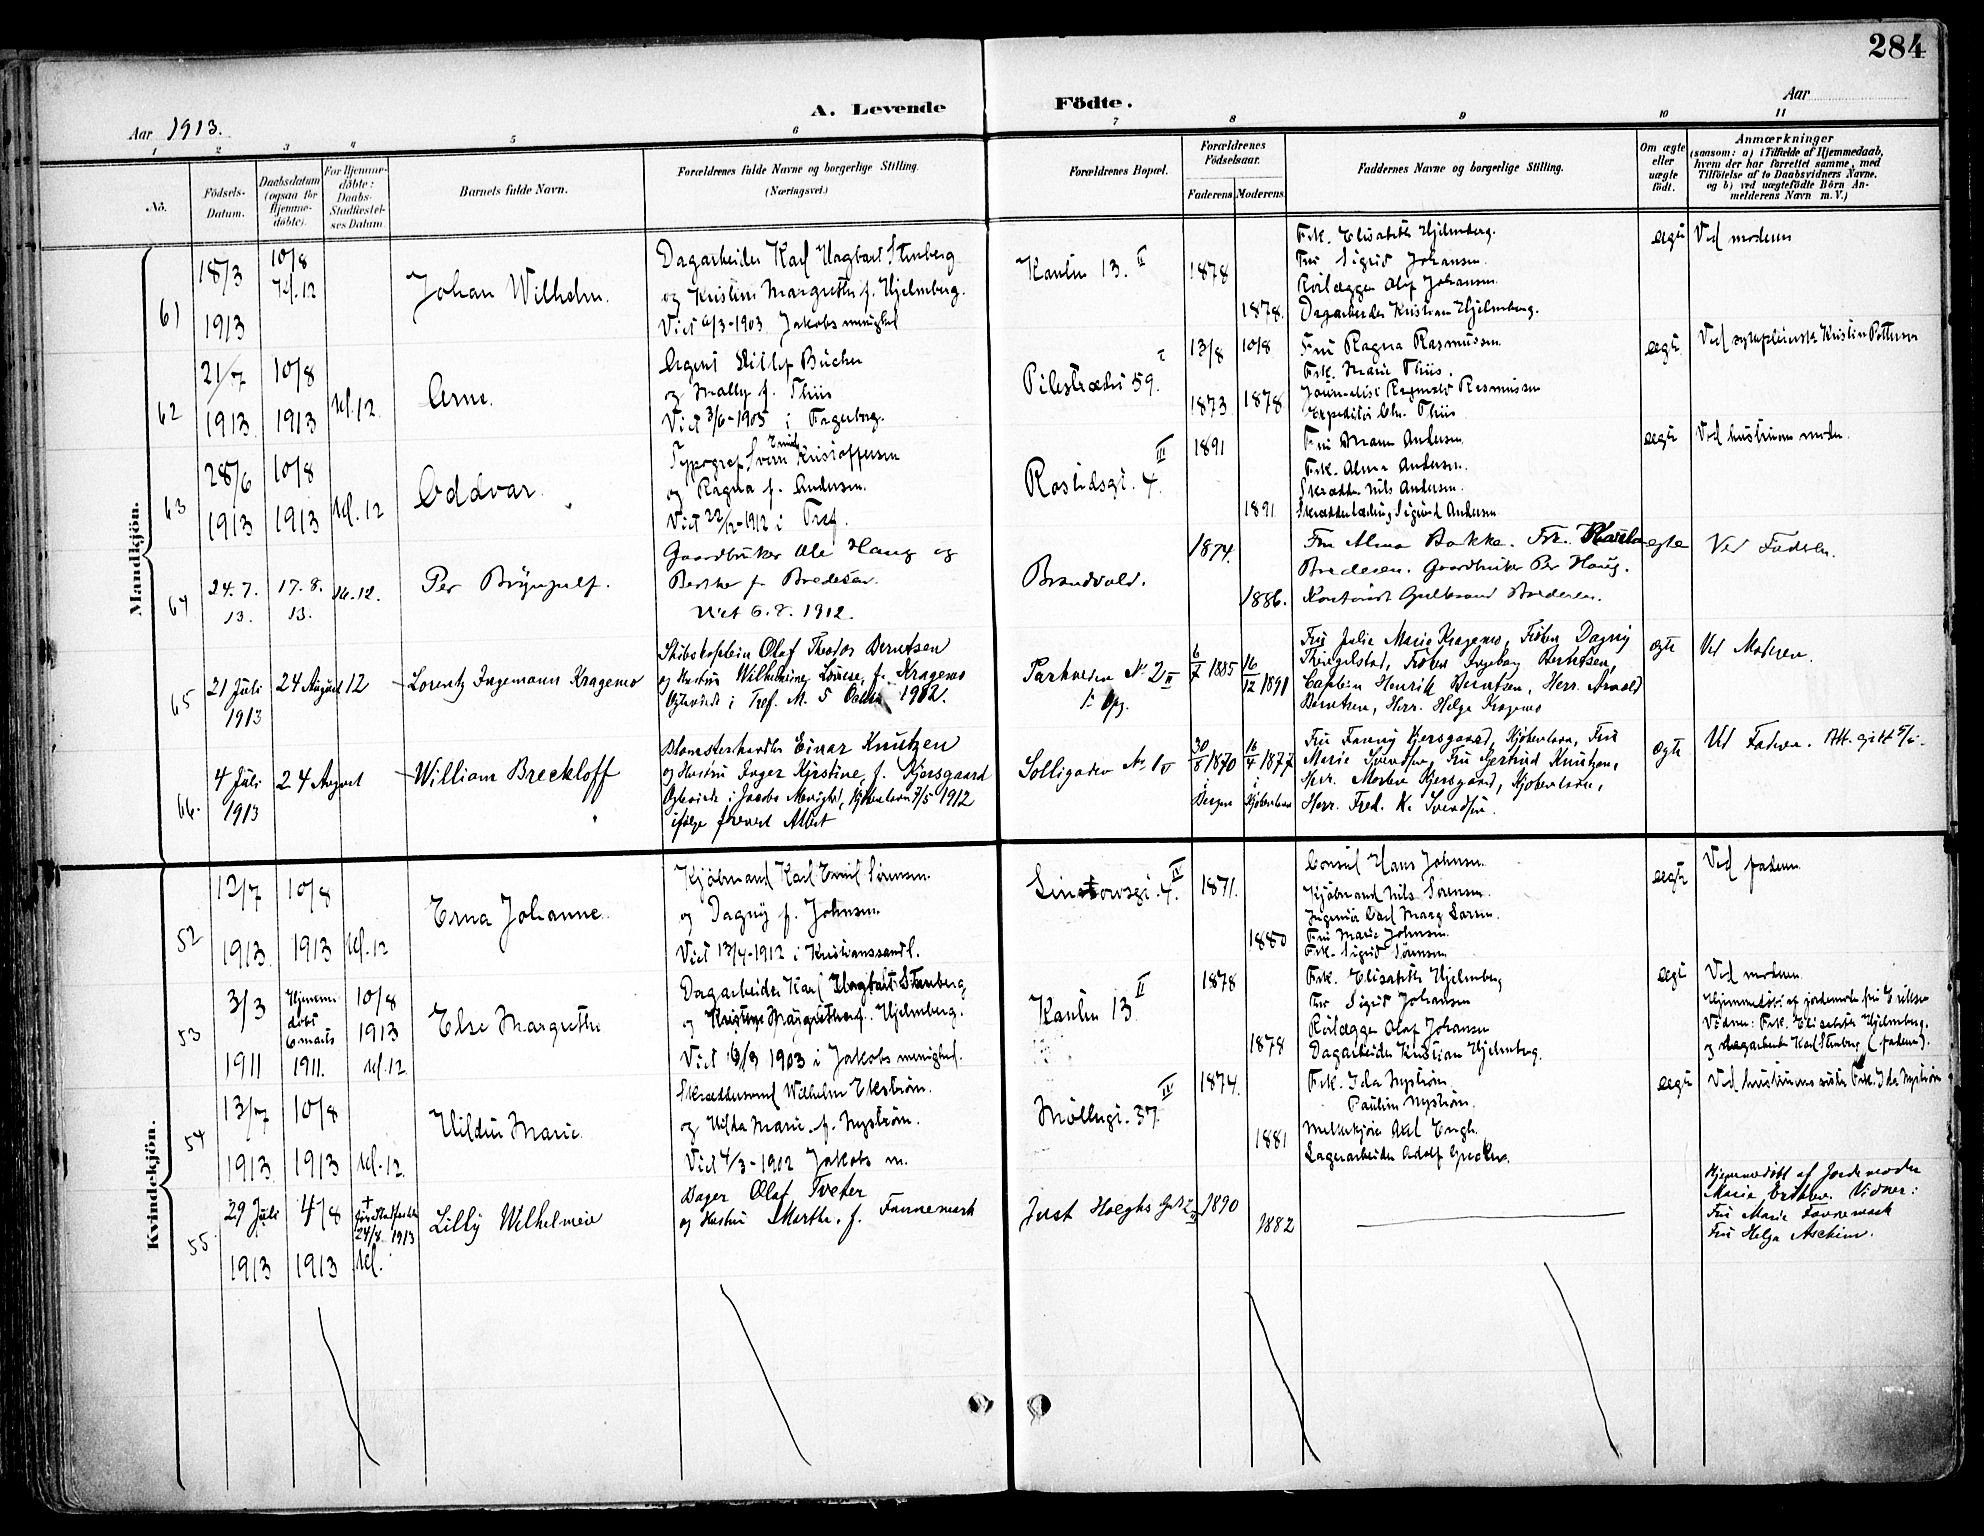 284
A. Levende Födte.
Aar 1913.
Aar
1 2 3 4 5 6 7 8 9 10 11
No.
Födsels-Datum.
Daabsdatum (ogsaa for Hjemme-döbte).
For Hjemme-döbte: Daabs-Stadfæstel-ses Datum
Barnets fulde Navn.
Forældrenes fulde Navne og borgerlige Stilling.
(Næringsvei.)
Forældrenes Bopæl.
Forældrenes Födselsaar.
Faderens Moderens
Faddernes Navne og borgerlige Stilling.
Om ægte eller uægte födt.
Anmærkninger
(saasom: a) i Tilfælde af Hjemmedaab, hvem der har forrettet samme, med Tilföielse af to Daabsvidners Navne, og b) ved uægtefödte Börn An-melderens Navn m. V.)
Mandkjön.
61
18/3 1913
10/8
Ref. 12
Johan Wilhelm.
Dagarbeider Karl Hagbart Stenberg
og Kristine Margrethe f. Hjelmberg.
Viet 6/3-1903 Jakobs menighed
Kanten 13. II
1878
1878.
Frk. Elisabeth Hjelmberg.
Fru Sigrid Johansen.
Rörlægger Olaf Johansen
Dagarbeider Kristian Hjelmberg.
egte
Ved moderen
62
21/7 1913
10/8 1913
ref. 12.
Arne.
Agent Ditlef Bücher
og Mally f. Thiis
Viet 3/6-1905 i Fagerborg.
Pilestrædet 59. I
13/8 1873
10/8 1878
Fru Ragna Rasmussen
Frk. Marie Thiis.
Journalist Ragnvald Rasmussen
Expeditör Chr. Thiis
egte
Ved sykepleierske Kristine Pettersen
63
28/6 1913
10/8 1913
ref. 12
Oddvar.
Typograf Sverre Emil Kristoffersen
og Ragna f. Andersen.
Viet 22/12-1912 i Tref.
Rostedsgt. 4. III
1891
1891
Frk. Alma Andersen.
Skrædder Nils Andersen.
Skrædderlærling Sigurd Andersen
egte
Ved hustruens moder.
64
24.7. 13.
17.8. 13.
rf. 12.
Per Brynjulf.
Gaardbruker Ole Haug og
Berthe f. Bredesen.
Viet 6.7. 1912.
Brandvold.
1874.
1886.
Fru Alma Bakke. Frk.
Bredesen. Gaardbruker Per Haug.
Kontorist Gulbrand Bredesen.
egte
Ved Faderen.
65
21 Juli 1913
24 August
12
Lorentz Ingemann Kragemo
Skibskaptein Olaf Theodor Berntsen
og Hustru Wilhelmine Lovise, f. Kragemo
Ægteviede i Tref. M. 5 1912.
Parkveien No 2 II
i Opg.
6/7 1885
16/12 1891
Fru Julie Marie Kragemo, Fröken Dagny
Thingelstad, Fröken Ingeborg Berntsen,
Captein Henrik Berntsen, Herr Arnold
Berntsen, Herr. Helge Kragemo
egte
Ved Moderen.
66.
4 Juli 1913
24 August
William Breckloff
Blomsterhandler Einar Knutzen
og Hustru Inger Kirstine, f. Kjersgaard
Ægteviede i Jacobs Menighed, Kjöbenhavn 7/5 1912
ifölge foreviст Attest
Solligaden No 1 V
30/8 1870 i Bergen
16/4 1877 i Kjöbenhavn
Fru Fanny Kjersgaard, Kjöbenhavn, Fru
Marie Svendsen, Fru Gertrud Knutzen,
Herr. Morten Kjersgaard, Kjöbenhavn,
Herr. Fred. K. Svendsen.
egte
Ved Faderen.
Kvindekjön.
52
12/7 1913
10/8 1913
ref. 12
Erna Johanne
Kjöbmand Karl Emil Sörensen.
og Dagny f. Johnsen.
Viet 13/4-1912 i Kristianssand.
Linstowsgt. 4 IV
1871.
1880
Consul Hans Johnsen
Kjöbmand Nils Sörensen.
Ingeniör Carl Marg Larsen.
Fru Marie Johnsen.
Frk. Sigrid Sörensen
egte
Ved faderen
53
3/3 1911
Hjemmedöbt 6 marts 1911.
10/8 1913 ref. 12
Else Margrethe
Dagarbeider Karl Hagbart Stenberg
og Kristine Margrethe f. Hjelmberg.
Viet 6/3 1903 i Jakobs menighed.
Kanten 13 II
1878
1878
Frk. Elisabeth Hjelmberg
Fru Sigrid Johansen
Rörlægger Olaf Johansen
Dagarbeider Kristian Hjelmberg.
egte
Ved moderen.
Hjemmedöbt af jordemoder fru Eriksen
Vidner: Frk. Elisabeth Hjelmberg.
og dagarbeider Karl Stenberg (faderen).
54
13/7 1913
10/8 1913
ref. 12
Hildur Marie
Skræddersvend Wilhelm Ekström.
og Hilda Marie. f. Nyström.
Viet 4/3-1902 Jakobs m.
Möllergt. 37 IV
1874.
1881
Frk. Ida Nyström
Pauline Nyström.
Melkekjörer Axel Engh.
Lagerarbeider Adolf
egte
Ved hustruens söster Frk. Ida Nyström
55
29 Juli 1913
4/8 1913
† för Stadfæstelse 24/8 1913 ref.
Lilly Wilhelmine
Bager Olaf Tveter
og Hustru Marthe, f. Fannemark
Just Höeghs Gd.
1890
1882
Hjemmedöbt af Jordemoder
Marie Eriksen. Vidner:
Fru Marie Fannemark
Fru Helga Aschim.